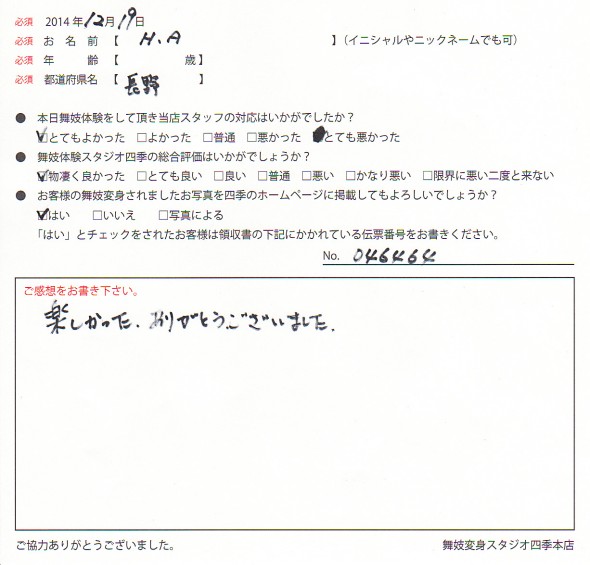 必須 2014年12月19日
必須 お名前【 H.A 】(イニシャルやニックネームでも可)
必須 年 齢【 歳】
必須 都道府県名【 長野 】
● 本日舞妓体験をして頂き当店スタッフの対応はいかがでしたか？
☑とてもよかった □よかった □普通 □悪かった ■とても悪かった
● 舞妓体験スタジオ四季の総合評価はいかがでしょうか？
☑物凄く良かった □とても良い □良い □普通 □悪い □かなり悪い □限界に悪い二度と来ない
● お客様の舞妓変身されましたお写真を四季のホームページに掲載してもよろしいでしょうか？
☑はい □いいえ □写真による
「はい」とチェックをされたお客様は領収書の下記にかかれている伝票番号をお書きください。
No. 046464
ご感想をお書き下さい。
楽しかった。ありがとうございました。
ご協力ありがとうございました。 舞妓変身スタジオ四季本店